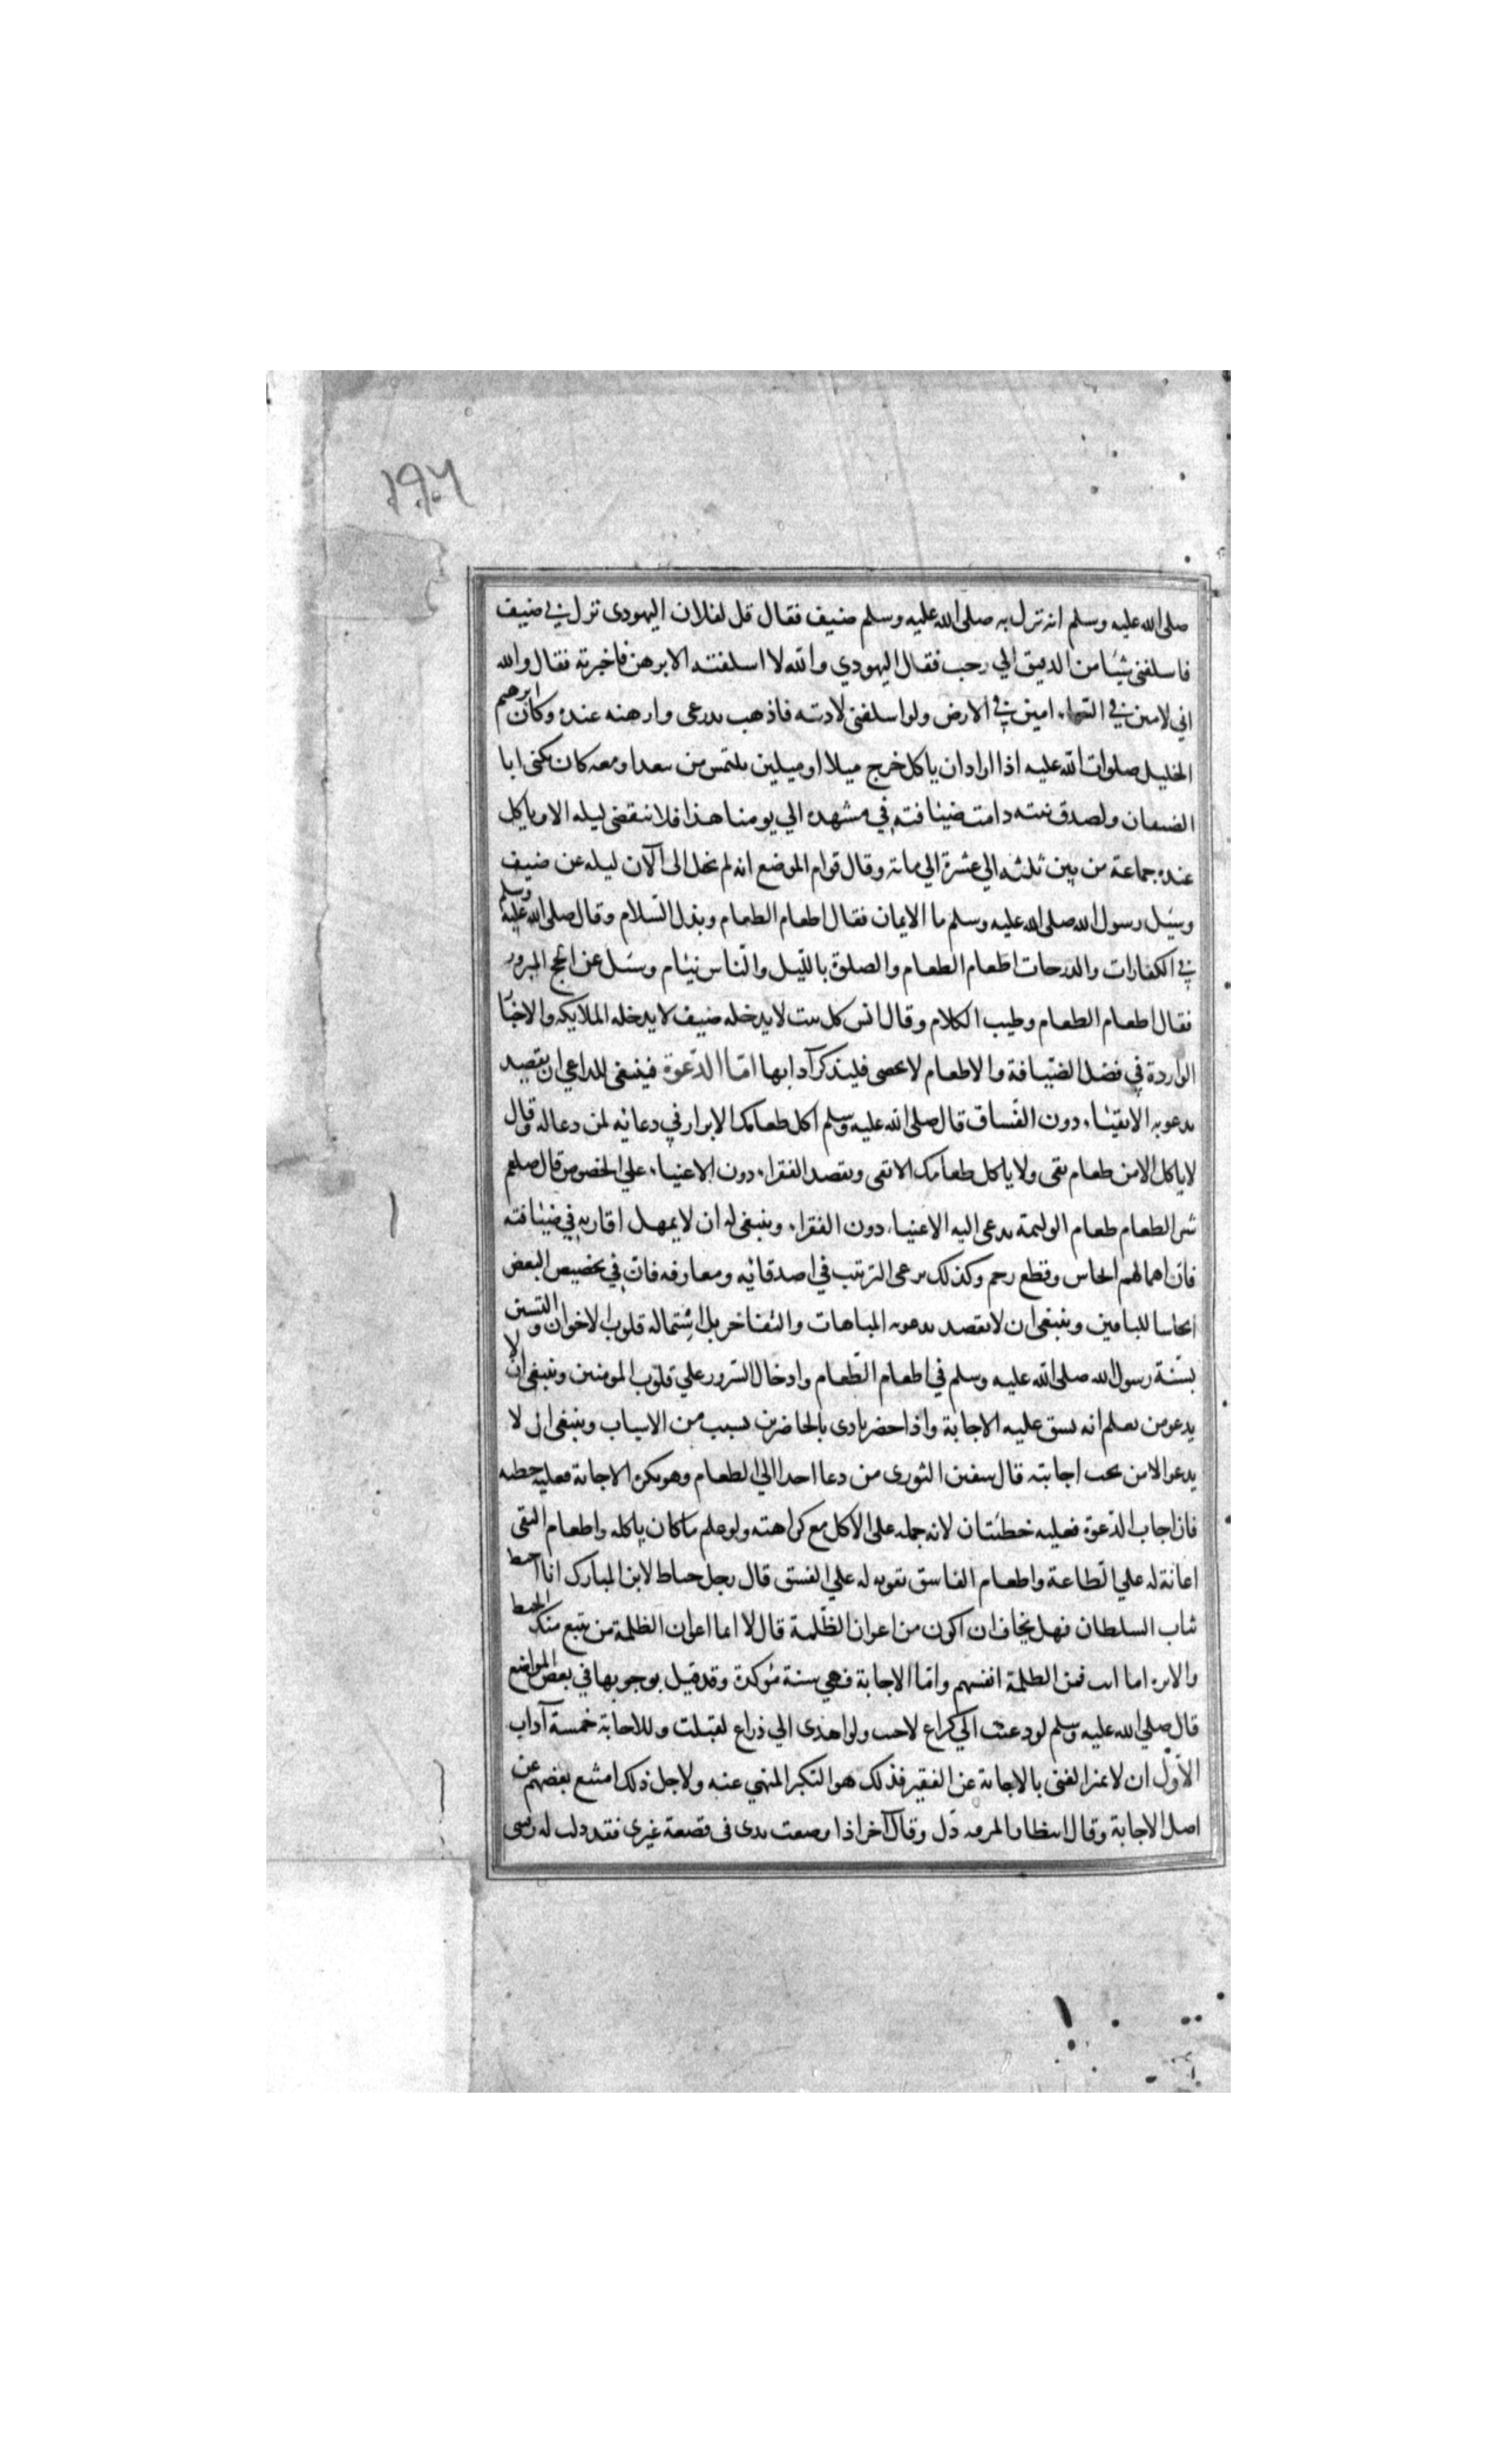 ١٩٦
صلى الله عليه وسلم انه نزل به صلى الله عليه وسلم ضيف فقال قل لفلان اليهودى نزل بي ضيف
فاسلفنى شيئا من الدقيق الي رجب فقال اليهودي والله لا اسلفته الا برهن فاخبرته فقال والله
اني لامين في السماء امين في الارض ولو اسلفنى لاديته فاذهب بدرعى وارهنه عنده وكان ابرهيم
الخليل صلوات الله عليه اذا اراد ان ياكل خرج ميلا او ميلين يلتمس من يتغدا معه وكان يكنى ابا
الضيفان ولصدق نيته دامت ضيافته في مشهده الي يومنا هذا فلا تنقضى ليله الا وياكل
عنده جماعة من بين ثلثه الي عشرة الي مائة وقال قوام الموضع انه لم يخل الى الآن ليله عن ضيف
وسئل رسول الله صلى الله عليه وسلم ما الايمان فقال اطعام الطعام وبذل السلام وقال صلى الله عليه وسلم
في الكفارات والدرجات اطعام الطعام والصلوة بالليل والناس نيام وسئل عن الحج المبرور
فقال اطعام الطعام وطيب الكلام وقال انس كل بيت لا يدخله ضيف لا يدخله الملايكه والاخبار
الواردة في فضل الضيافة والاطعام لا تحصى فليذكر آدابها اما الدعوة فينبغى للداعي ان يقصد
بدعوته الاتقياء دون الفساق قال صلى الله عليه وسلم اكل طعامك الابرار في دعائه لمن دعا له وقال
لا ياكل الا من طعام تقى ولا ياكل طعامك الا تقى ويقصد الفقراء دون الاغنياء على الخصوص قال صلعم
شر الطعام طعام الوليمة يدعى اليه الاغنياء دون الفقراء وينبغى له ان لا يهمل اقاربه في ضيافته
فان اهمالهم ايحاش وقطع رحم وكذلك يرعى الترتيب في اصدقائه ومعارفه فان في تخصيص البعض
ايحاشا للباقين وينبغى ان لا يقصد بدعوته المباهات والتفاخر بل استماله قلوب الاخوان والتسنن
بسنة رسول الله صلى الله عليه وسلم في اطعام الطعام وادخال السرور علي قلوب المومنين وينبغى ان لا
يدعو من يعلم انه يشق عليه الاجابة واذا حضر تاذى بالحاضرين بسبب من الاسباب وينبغى ان لا
يدعو الا من يحب اجابته قال سفين الثورى من دعا احدا الي الطعام وهو يكره الاجابة فعليه خطيه
فان اجاب الدعوة فعليه خطئتان لانه حمله على الاكل مع كراهته ولو علم ما كان ياكله واطعام التقى
اعانة له علي الطاعة واطعام الفاسق تقويه له علي الفسق قال رجل خياط لابن المبارك انا اخيط
ثياب السلطان فهل تخاف ان اكون من اعوان الظلمة قال لا انما اعوان الظلمة من يبيع منك الخيط
والابره اما انت فمن الظلمة انفسهم واما الاجابة فهي سنة مؤكدة وقد قيل بوجوبها في بعض المواضع
قال صلي الله عليه وسلم لو دعيت الي كراع لاجبت ولو اهدى الي ذراع لقبلت وللاجابة خمسة آداب
الاول ان لا يميز الغنى بالاجابة عن الفقير فذلك هو التكبر المنهي عنه ولاجل ذلك امتنع بعضهم عن
اصل الاجابة وقال انتظار المرقه ذل وقال آخر اذا وضعت يدى فى قصعة غيرى فقد ذلت له رقبتى